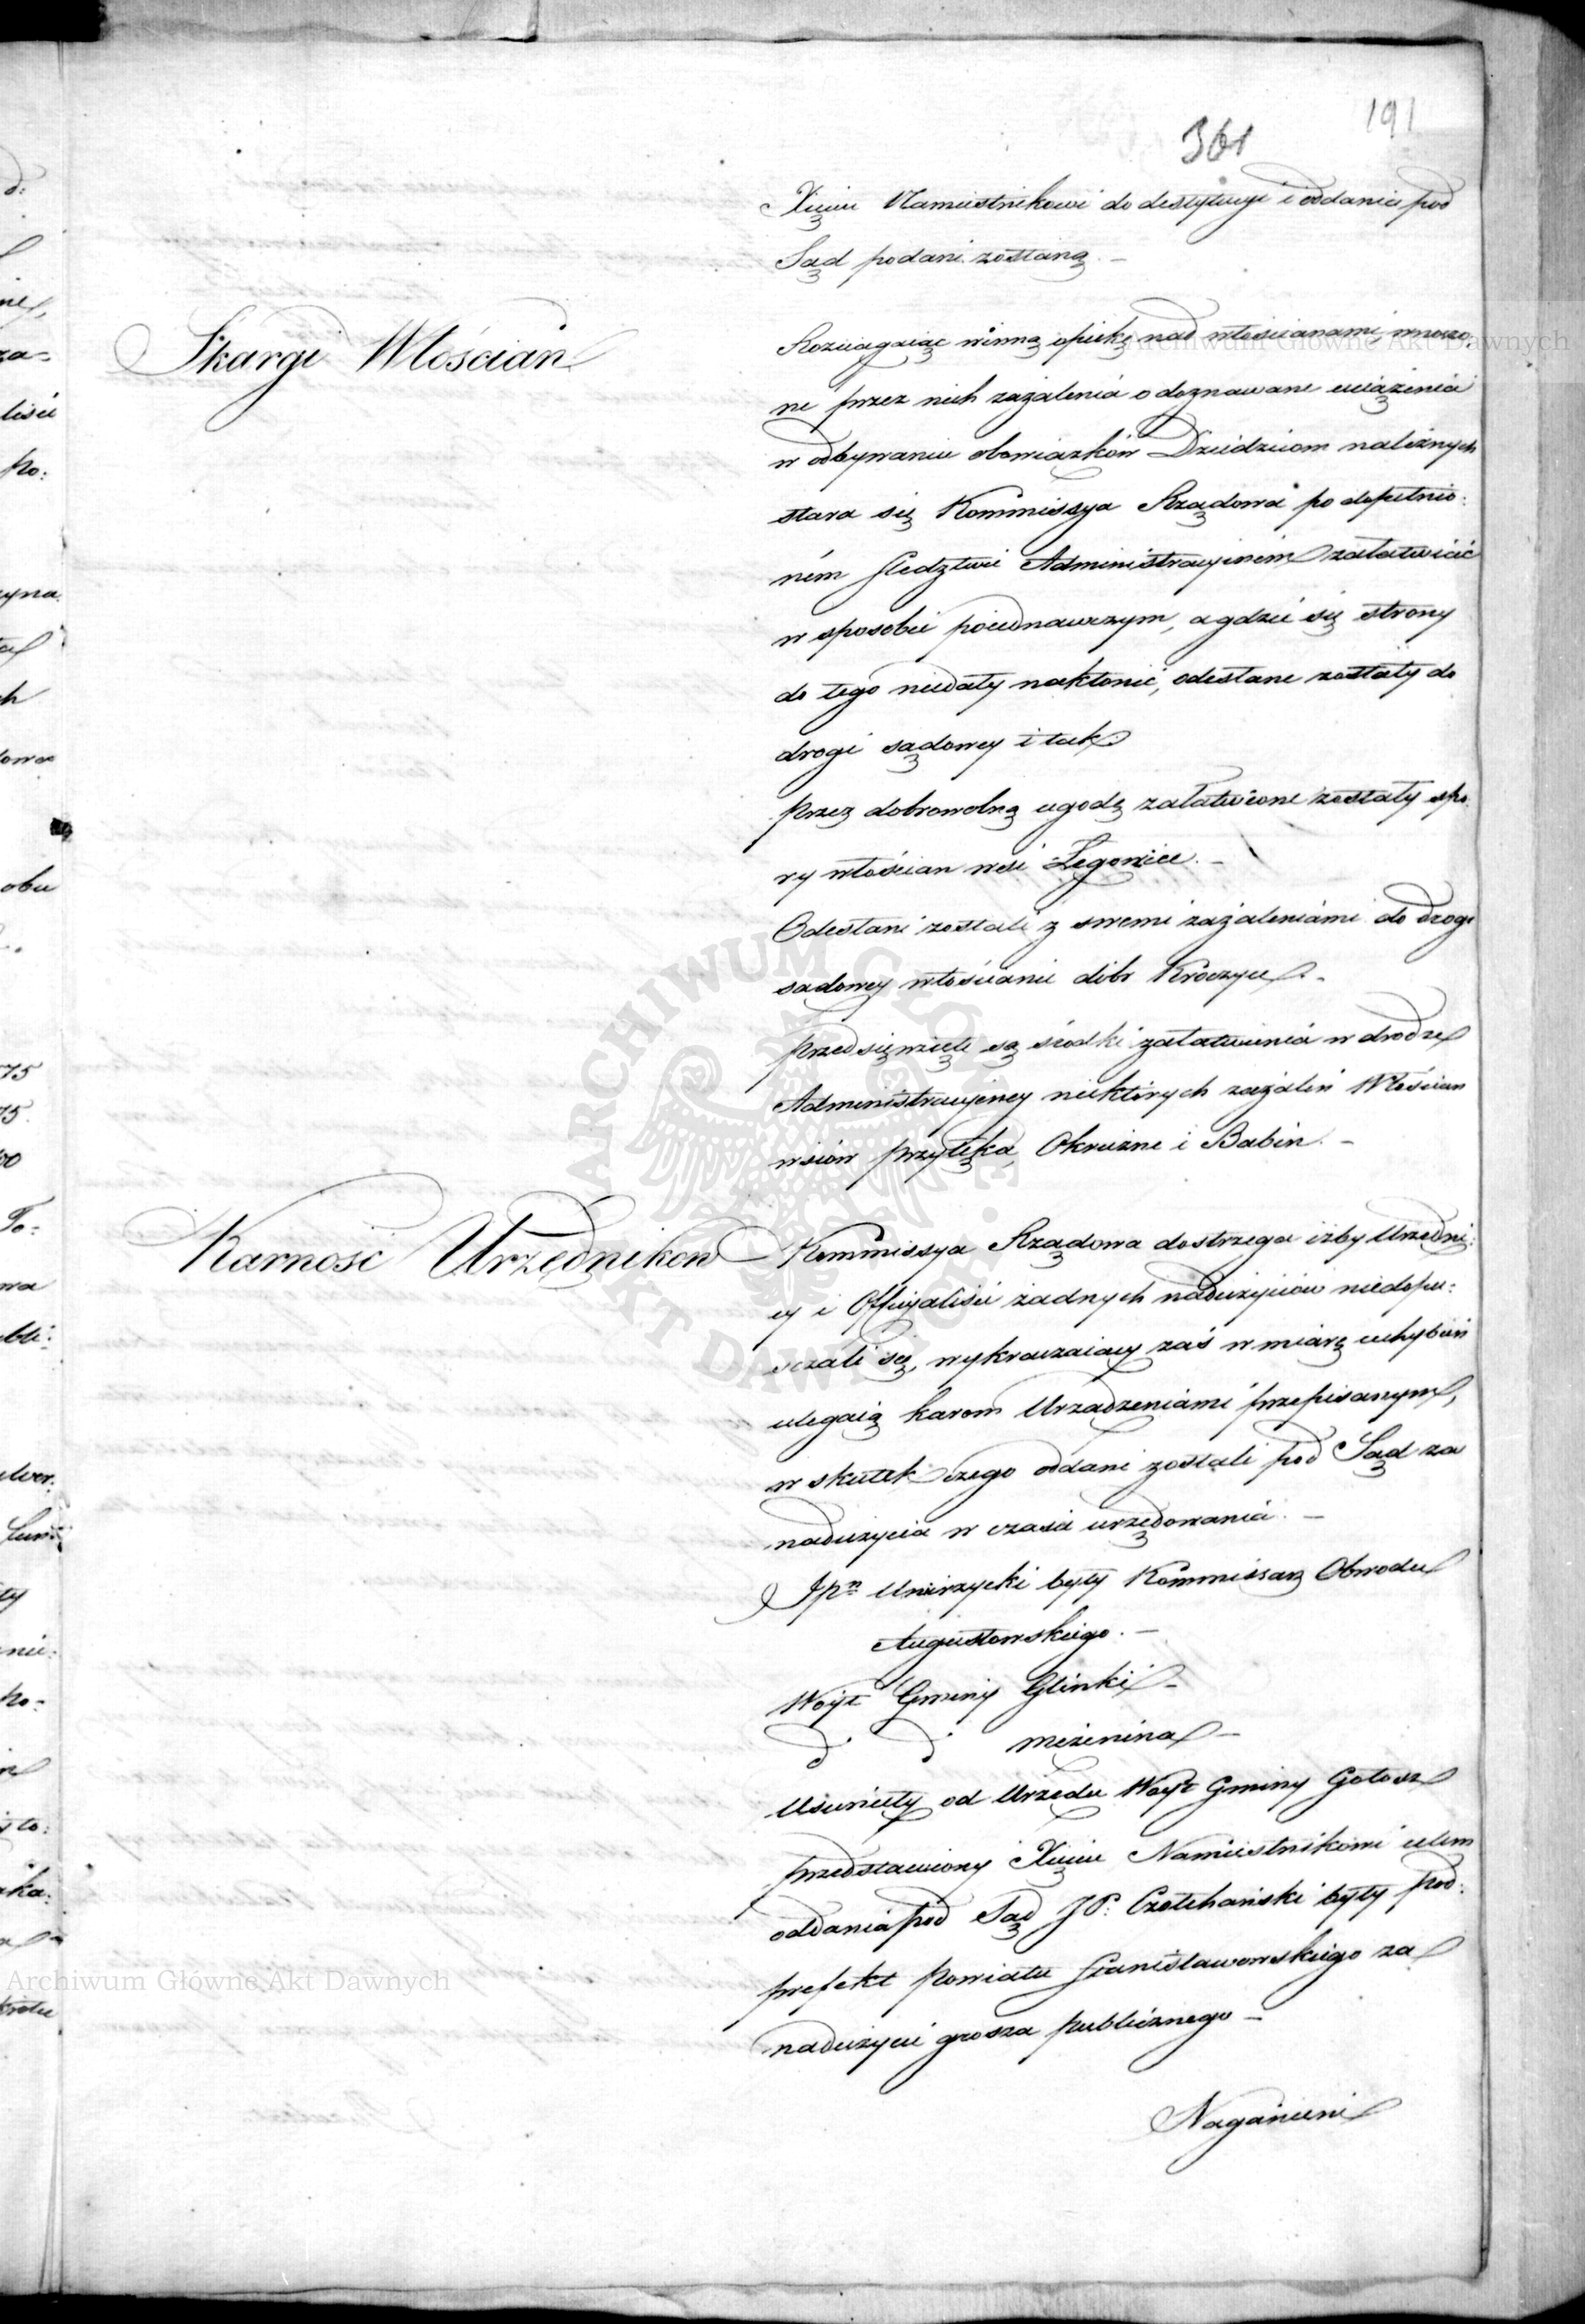 191
361
Xięciu Namiestnikowi do destytucyi i oddania pod
Sąd podani zostaną. —
Skargi Włościan
Rozciągaiąc winną opiekę nad włościanami, wnoszo:
ne przez nich zażalenia o doznawane uciążenia
w odbywaniu obowiązków Dziedzicom należnych
stara się Kommissya Rządowa po dopełnio:
ném śledztwie Administracyinem załatwiać
w sposobie poiednawczym, a gdzie się strony
do tego niedały nakłonić, odesłane zostały do
drogi sądowey i tak:
przez dobrowolną ugodę załatwione zostały spo:
ry włościan wsi Łęgonice. —
Odesłani zostali z swemi zażaleniami do drogi
sądowey włościanie dóbr Kroczyce. —
przedsięwzięte są środki załatwienia w drodze
Administracyiney niektórych zażaleń Włościan
wsiów przyłęka, Okrużne i Babin. —
Karność Urzędników
Kommissya Rządowa dostrzega iżby Urzędni:
cy i Officyaliści żadnych nadużyciów niedopu:
szczali się, wykraczaiący zaś w miarę uchybień
ulegaią karom Urządzeniami przepisanym,
w skutek czego oddani zostali pod Sąd za
nadużycia w czasie urzędowania. —
JPn Unirzycki były Kommissarz Obwodu
Augustowskiego. —
Woyt Gminy Glinki —
d° d° Mężenina —
Usunięty od Urzędu Woyt Gminy Gołosze
przedstawiony Xięciu Namiestnikowi celem
oddania pod Sąd JP: Czołchański były pod:
prefekt Powiatu Stanisławowskiego za
nadużycie grosza publicznego —
Naganieni
Archiwum Główne Akt Dawnych
Archiwum Główne Akt Dawnych
ARCHIWUM GŁÓWNE AKT DAWNYCH